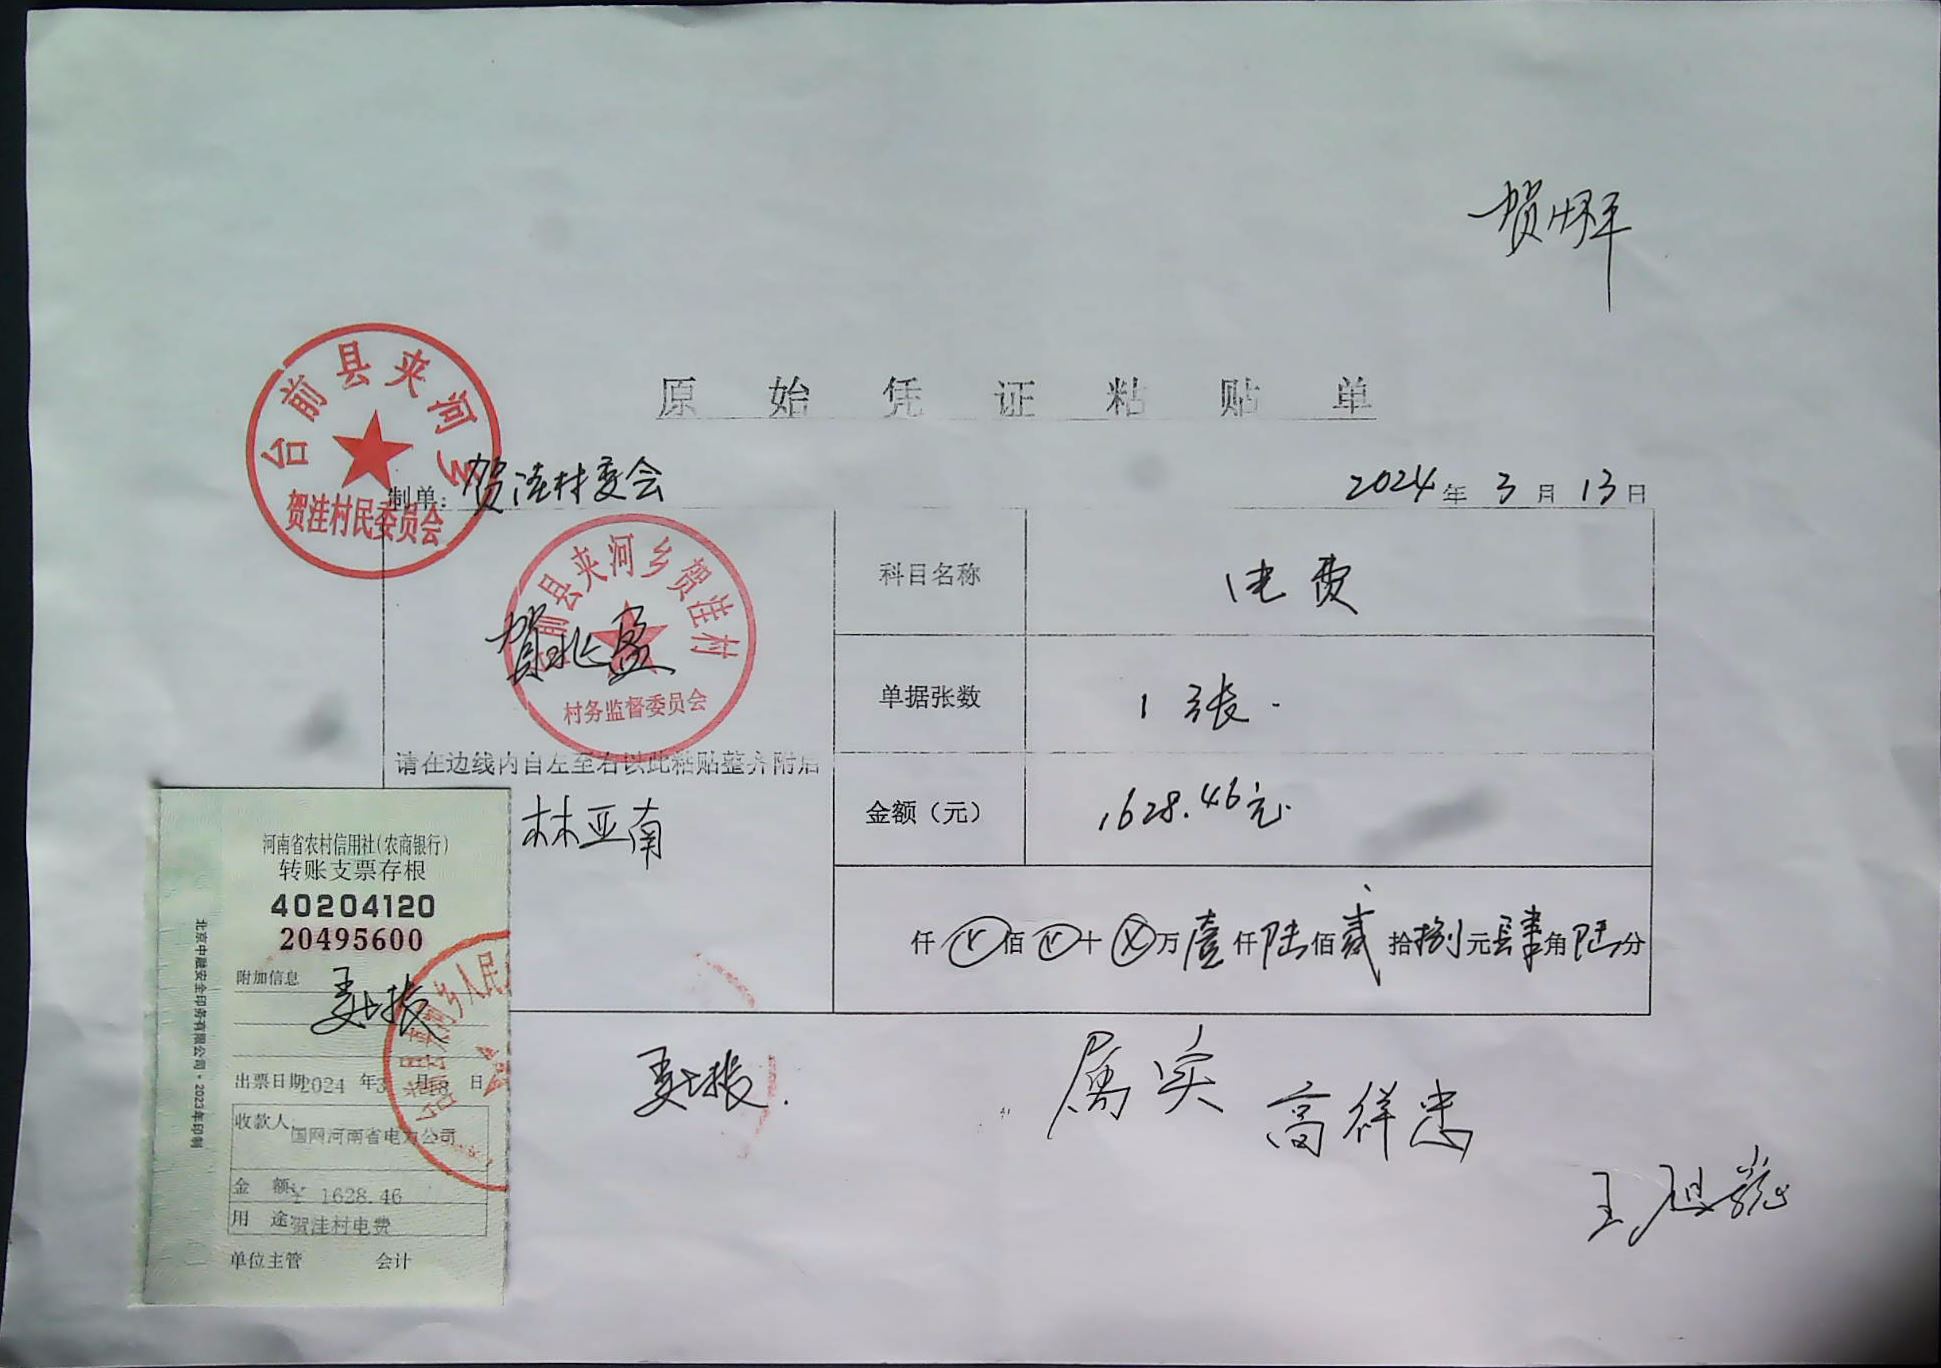 原始凭证粘贴单
台前县夹河乡
贺洼村民委员会
制单：贺洼村委会
2024年3月13日
台前县夹河乡贺洼村
村务监督委员会
贺兆盈
科目名称 电费
单据张数 1张.
请在边线内自左至右以此粘贴整齐附后
金额（元） 1628.46元.
林亚南
仟佰十万壹仟陆佰贰拾捌元肆角陆分
河南省农村信用社(农商银行)
转账支票存根
40204120
20495600
附加信息
出票日期2024年3月 日
收款人:国网河南省电力公司
金额:¥ 1628.46
用途:贺洼村电费
单位主管 会计
北京中融安全印务有限公司·2023年印制
属实
高祥忠